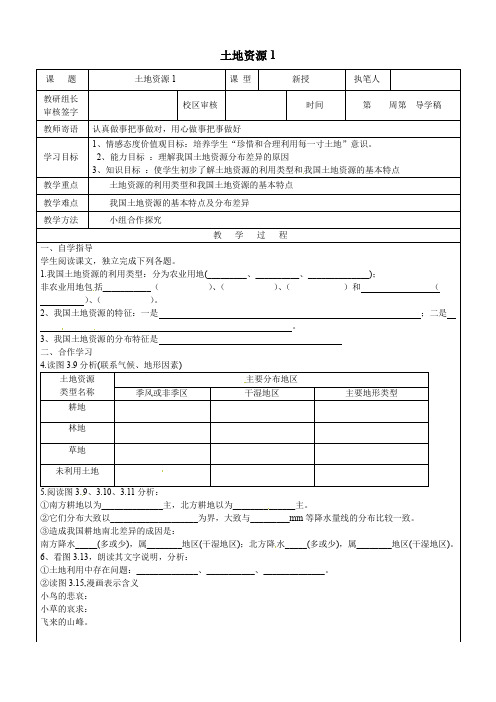 土地资源1
课 题 土地资源1 课 型 新授 执笔人
教研组长审核签字 校区审核 时间 第 周第 导学稿
教师寄语 认真做事把事做对，用心做事把事做好
学习目标 1、情感态度价值观目标：培养学生“珍惜和合理利用每一寸土地”意识。
2、能力目标 ：理解我国土地资源分布差异的原因
3、知识目标 ：使学生初步了解土地资源的利用类型和我国土地资源的基本特点
教学重点 土地资源的利用类型和我国土地资源的基本特点
教学难点 我国土地资源的基本特点及分布差异
教学方法 小组合作探究
教 学 过 程
一、自学指导
学生阅读课文，独立完成下列各题。
1.我国土地资源的利用类型：分为农业用地(_________、__________、______________)；
非农业用地包括___________（ ）、（ ）、（ ）和________（
________）、（ ）。
2、我国土地资源的特征：一是________________________；二是__
________________________。
3、我国土地资源的分布特征是________________________
二、合作学习
4.读图 3.9 分析(联系气候、地形因素)
土地资源类型名称 主要分布地区
季风或非季区 干湿地区 主要地形类型
耕地
林地
草地
未利用土地
5.阅读图 3.9、3.10、3.11 分析：
①南方耕地以为______________主，北方耕地以为______________主。
②它们分布大致以____________________为界，大致与_________mm 等降水量线的分布比较一致。
③造成我国耕地南北差异的成因是：
南方降水_____(多或少)，属________地区(干湿地区)；北方降水_____(多或少)，属________地区(干湿地区)。
6、看图 3.13，朗读其文字说明，分析：
①土地利用中存在问题：______________、___________、______________。
②读图 3.15,漫画表示含义
小鸟的悲哀：
小草的哀求：
飞来的山峰。